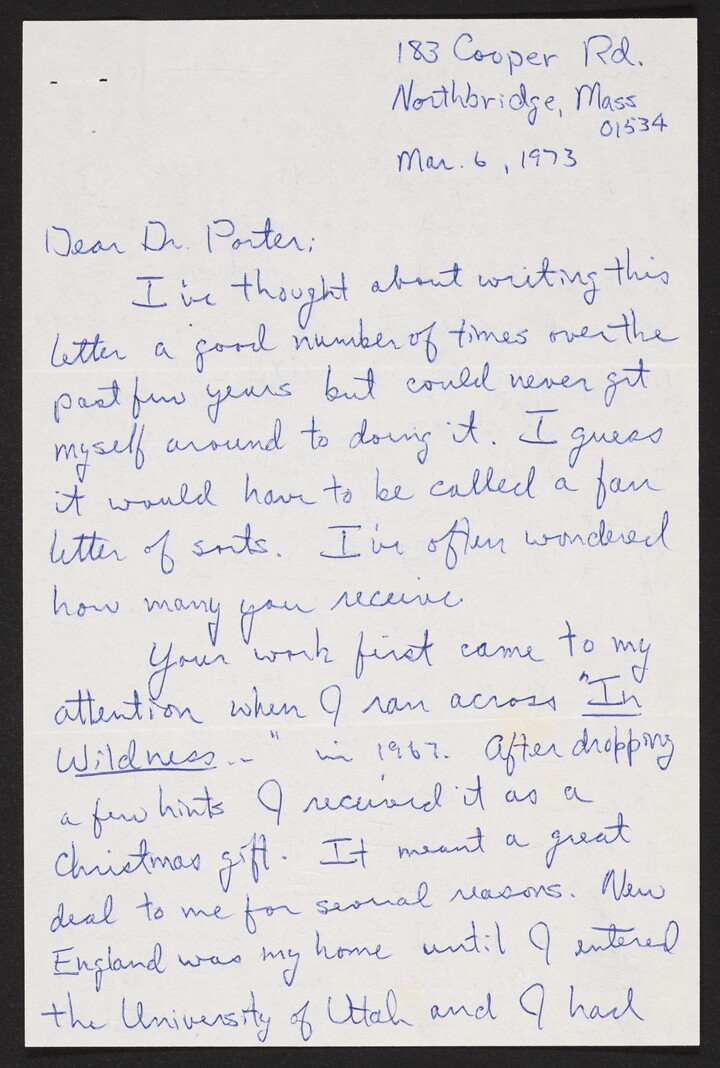 183 Cooper Rd.
Northbridge, Mass
01534
Mar. 6, 1973
Dear Dr. Porter;
I've thought about writing this
letter a good number of times over the
past few years but could never get
myself around to doing it. I guess
it would have to be called a fan
letter of sorts. I've often wondered
how many you receive.
Your work first came to my
attention when I ran across "In
Wildness.." in 1967. After dropping
a few hints I received it as a
Christmas gift. It meant a great
deal to me for several reasons. New
England was my home until I entered
the University of Utah and I had